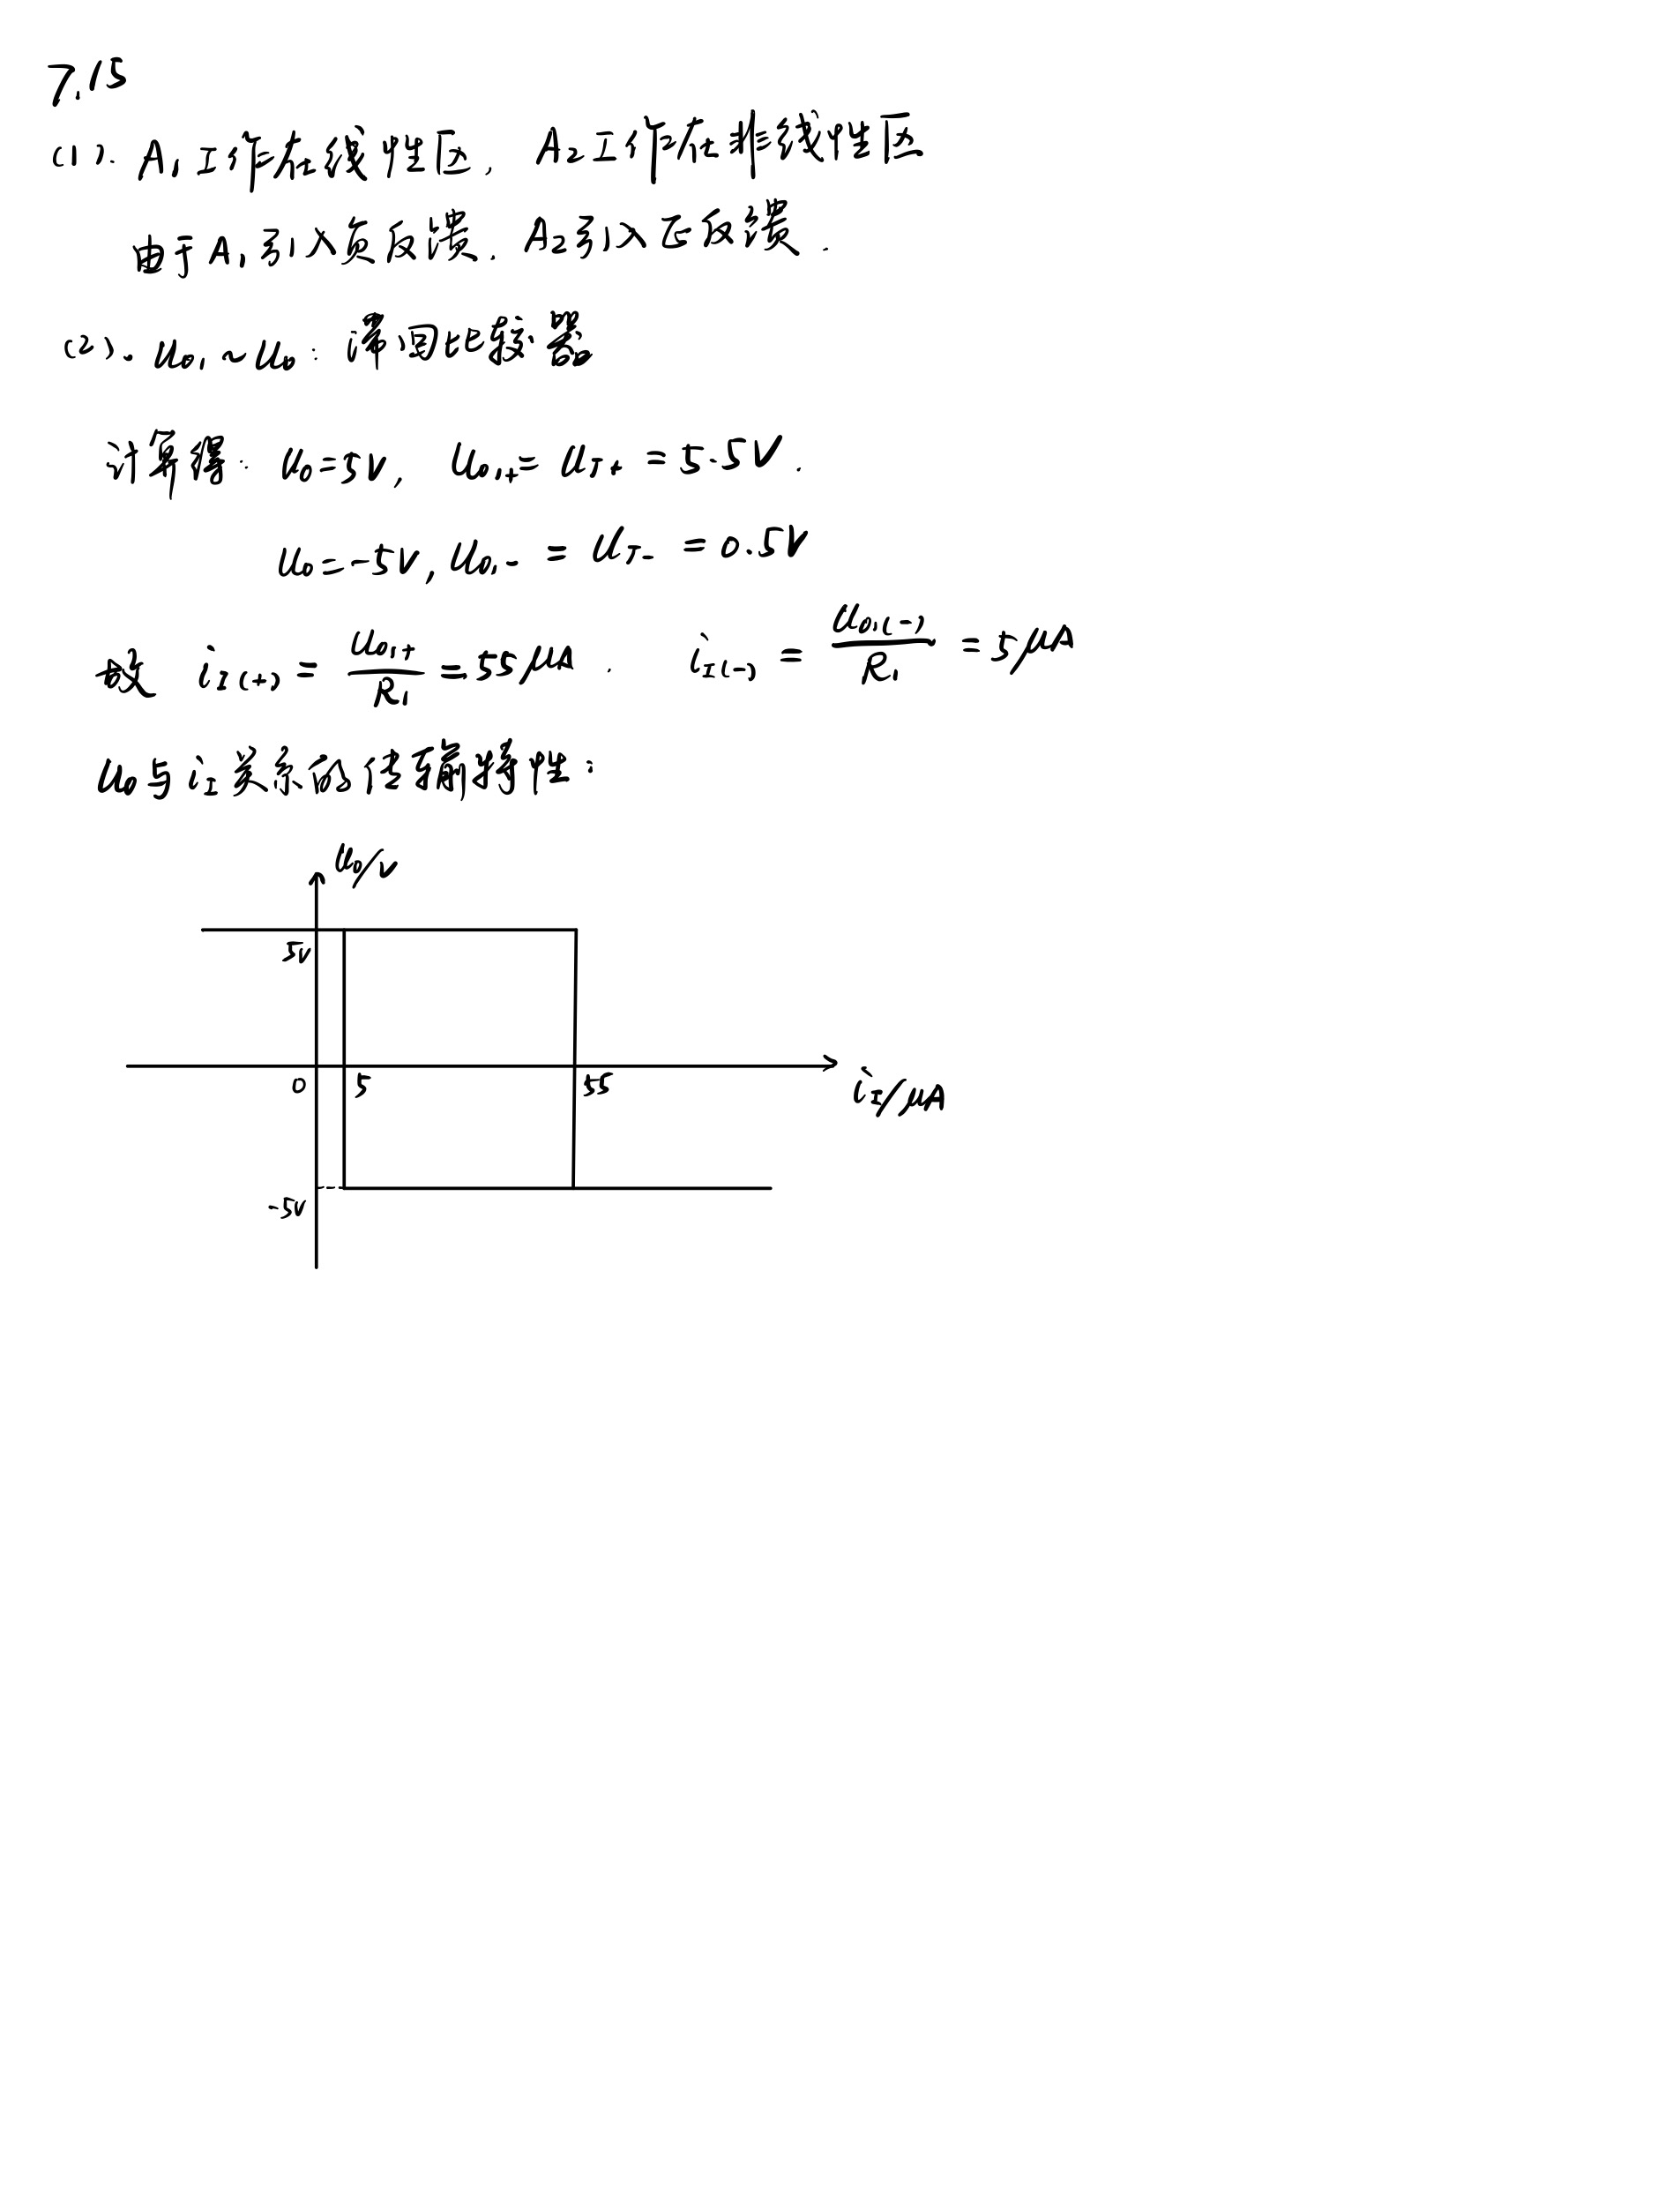 7.15
(1). A₁工作在线性区, A₂工作在非线性区
由于A₁引入负反馈. A₂引入正反馈.
(2). u₀₁~u₀: 滞回比较器
计算得: u₀=5V, u₀₁₊=u_T₊=5.5V.
u₀=-5V, u₀₁₋=u_T₋=0.5V
故 i_I(+)=u₀₁₊/R₁=55μA. i_I(-)=u₀₁(-)/R₁=5μA
u₀与i_I关系的传输特性:
u₀/V
5V
0 5 55
i_I/μA
-5V